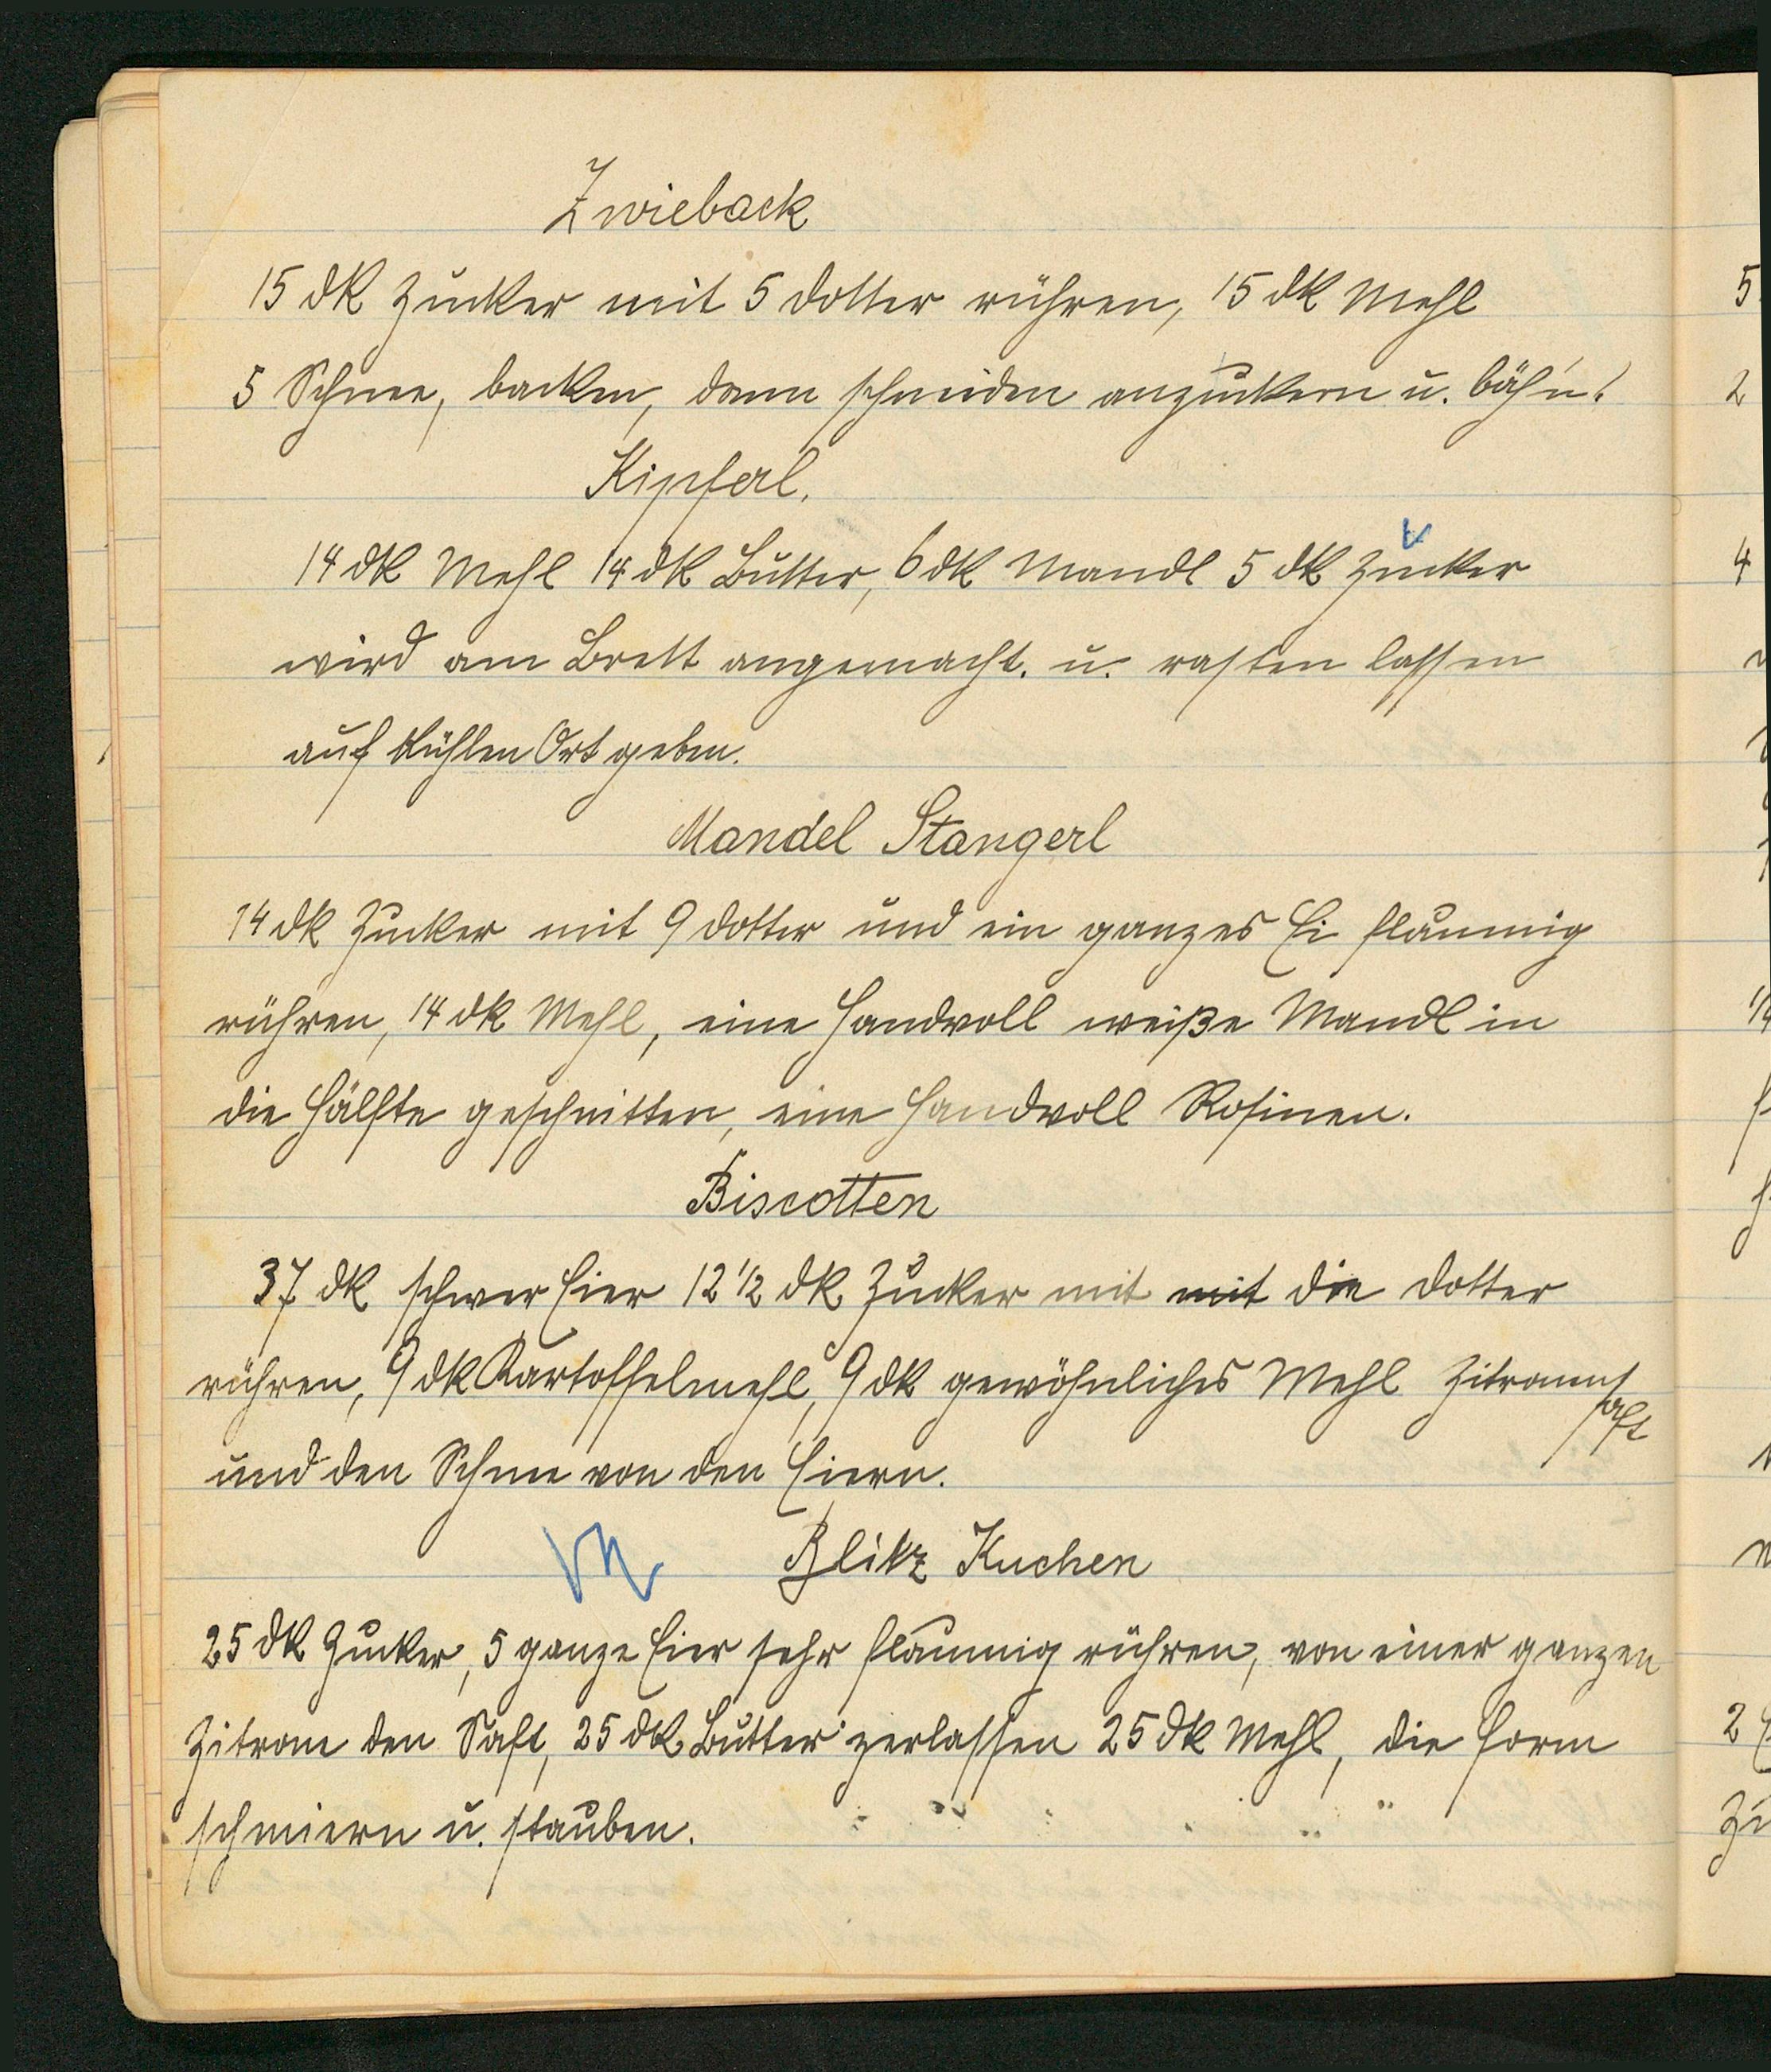 Zwieback
15 dk Zucker mit 5 Dotter rühren, 15 dk Mehl
5 Schnee, backen, dann schneiden anzuckern u. bäh'n.
Kipferl.
14 dk Mehl 14 dk Butter, 6 dk Mandl 5 dk Zucker
wird am Brett angemacht. u. rasten lassen
auf kühlen Ort geben.
Mandel Stangerl
14 dk Zucker mit 9 Dotter und ein ganzes Ei flaumig
rühren, 14 dk Mehl, eine Handvoll weiße Mandl in
die Hälfte geschnitten, eine Handvoll Rosinen.
Biscotten
37 dk schwer Eier 12 1/2 dk Zucker mit mit die Dotter
rühren, 9 dk Kartoffelmehl, 9 dk gewöhnliches Mehl Zitronens
aft
und den Schnee von den Eiern.
Blitz Kuchen
25 dk Zucker, 5 ganze Eier sehr flaumig rühren, von einer ganzen
Zitrone den Saft, 25 dk Butter zerlassen 25 dk Mehl, die Form
schmieren u. stauben.